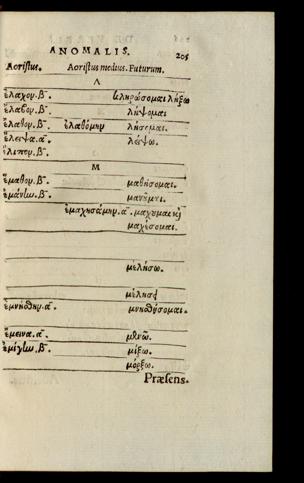 ANOMALIS. 205
Aoristus. Aoristus medius. Futurum.
Λ
ἔλαχον.β. κληρώσομαι λήξω
ἔλαβον.β. λήψομαι
ἔλαθον.β. ἐλαθόμην λήσομαι.
ἔλειψα.α. λείψω.
ἔλιπον.β.
M
ἔμαθον.β. μαθήσομαι.
ἐμάνην.β.
ἐμαχησάμην.α. μαχοῦμαι κỳ
μαχέσομαι.
μελήσω.
ἐμνήθην.α.
ἔμεινα.α. μενῶ.
ἐμίγην.β. μίξω.
μόρξω.
Præsens.